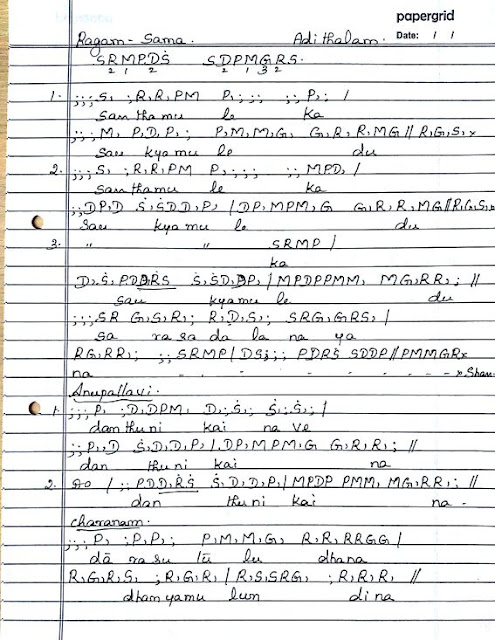 papergrid
Date: / /
Ragam - Sama. Adi thalam.
SRMPDṠ SDPMGRS.
2 1 2 2 1 3 2
1. ;;;S, ;R,R,PM P,;;; ;;P,; /
San tha mu le ka
;;;M, P,D,P,; P,M,M,G, G,R,R,MG // R,G,S,x
Sau kya mu le du
2. ;;;S, ;R,R,PM P,;;;; ;;MPD, /
San tha mu le ka
;;DP,D Ṡ,ṠDD,P, / DP,MPM,G G,R,R,MG // R,G,S,x
Sau kya mu le du
3. " " SRMP /
ka
D,Ṡ,PDDṘṠ Ṡ,ṠD,DP, / MPDPPMM, MG,RR,; //
sau kyamu le du
;;;SR G,S,R,; R,D,S,; SRG,GRS, /
sa ra sa da la na ya
RG,RR,; ;;SRMP / DS;;; PDRṠ SDDP // PMMGRx
na - - - - - - - x Shan.
Anupallavi.
1. ;;;P, ;D,DPM, D,;Ṡ,; Ṡ,;Ṡ,; /
dan thu ni kai na ve
;;P,,D Ṡ,D,D,P, / DP,MPM,G G,R,R,; //
dan thu ni kai na
2. DO / ;;PDD,ṘṠ Ṡ,D,D,P, / MPDP PMM, MG,RR,; //
dan thu ni kai na -
charanam.
;;;P, ;P,P,; P,M,M,G, R,R,RRGG /
dā ra su tū lu dhana
R,G,R,S, ;R,G,R, / R,S,SRG, ;R,R,R, //
dham yamu lun di na